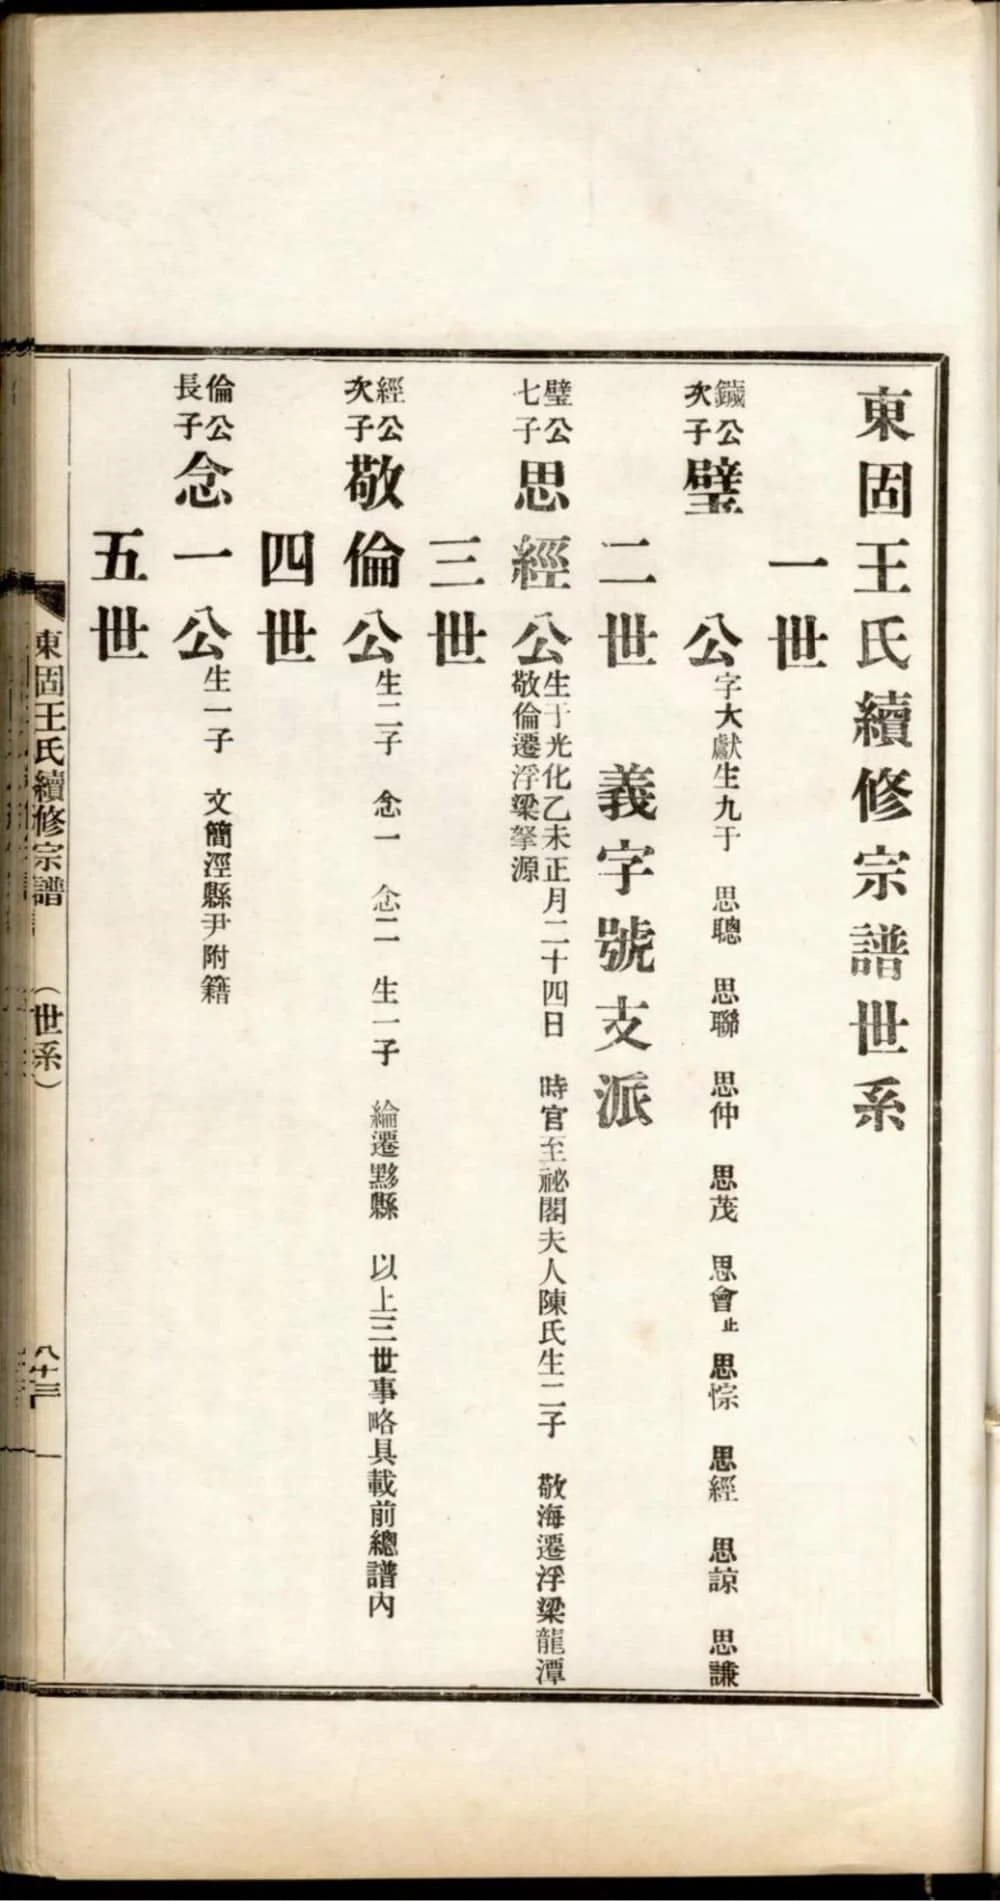 東固王氏續修宗譜世系
一世
鐬公次子璧公字大獻生九于 思聰 思聯 思仲 思茂 思會止 思悰 思經 思諒 思謙
二世 義字號支派
璧公七子思經公生于光化乙未正月二十四日 時官至祕閣夫人陳氏生二子 敬海遷浮梁龍潭
敬倫遷浮梁拏源
三世
經公次子敬倫公生二子 念一 念二 生一子 綸遷黟縣 以上三世事略具載前總譜內
四世
倫公長子念一公生一子 文簡涇縣尹附籍
五世
東固王氏續修宗譜 (世系) 八十三